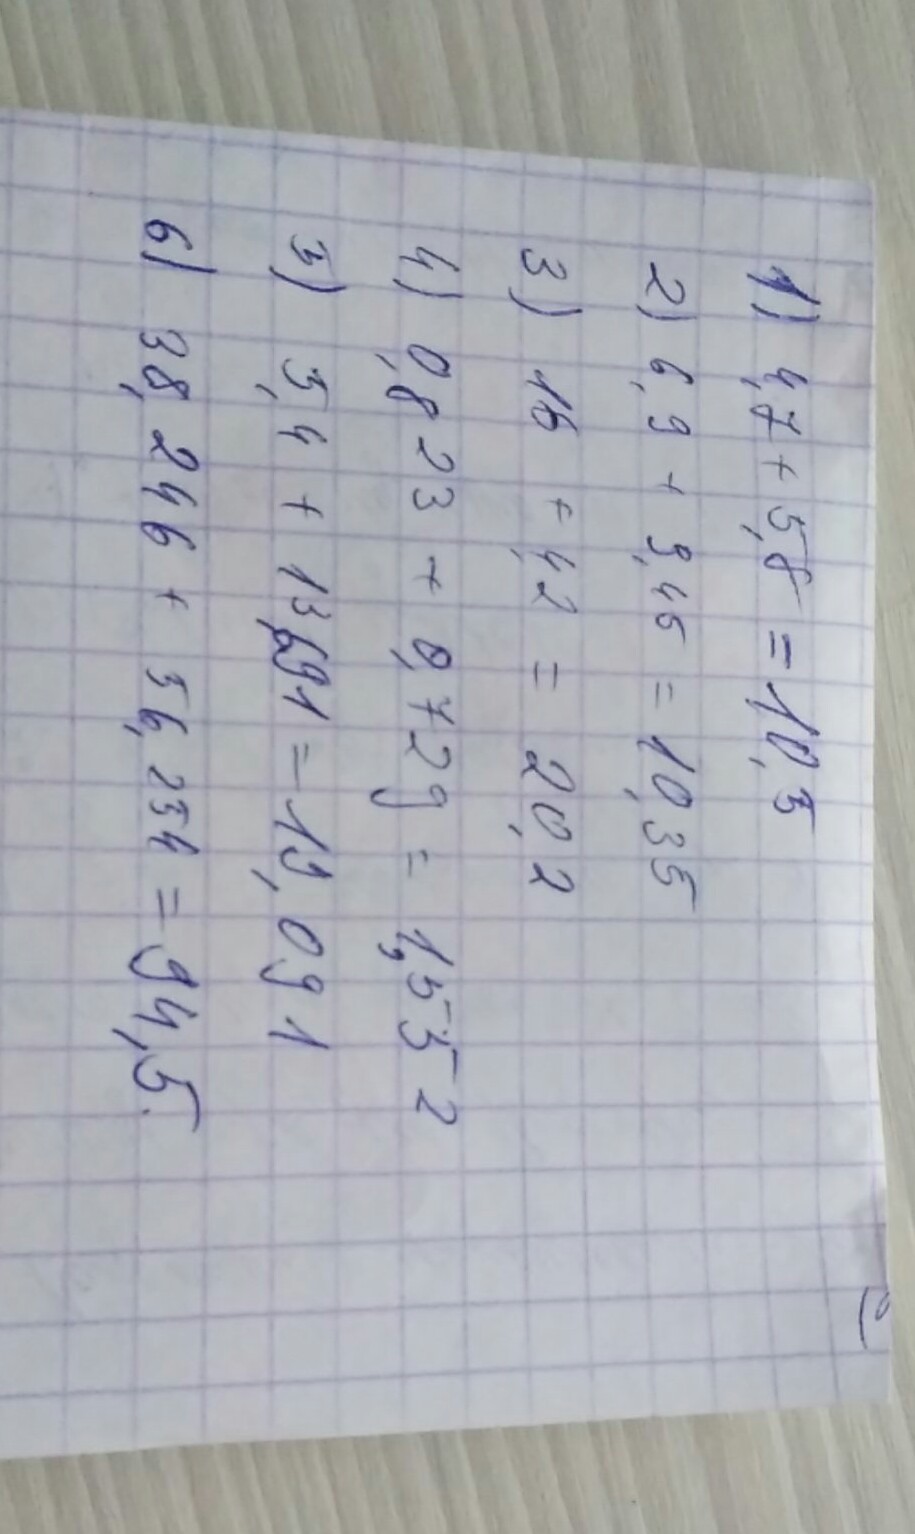 1) 4,7 + 5,8 = 10,5
2) 6,9 + 3,45 = 10,35
3) 16 + 4,2 = 20,2
4) 0,823 + 0,729 = 1,552
5) 5,4 + 13,691 = 19,091
6) 38,246 + 56,254 = 94,5